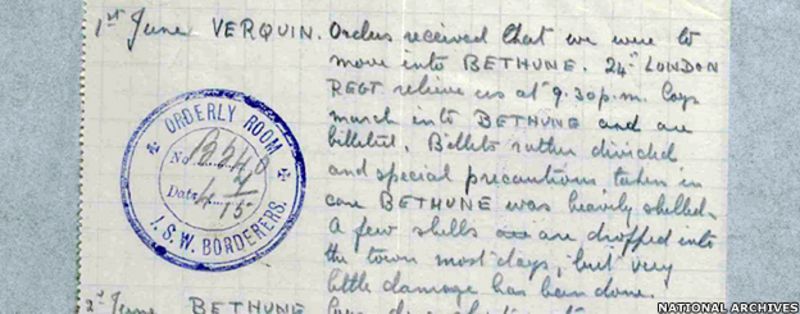 1st June VERQUIN. Orders received that we were to
move into BETHUNE. 24th LONDON
REGT relieve us at 9.30 p.m. Coys
march into BETHUNE and are
billeted. Billets rather divided
and special precautions taken in
case BETHUNE was heavily shelled.
A few shells are dropped into
the town most days, but very
little damage has been done.
2nd June BETHUNE
ORDERLY ROOM
No
Date
1. S.W. BORDERERS.
NATIONAL ARCHIVES